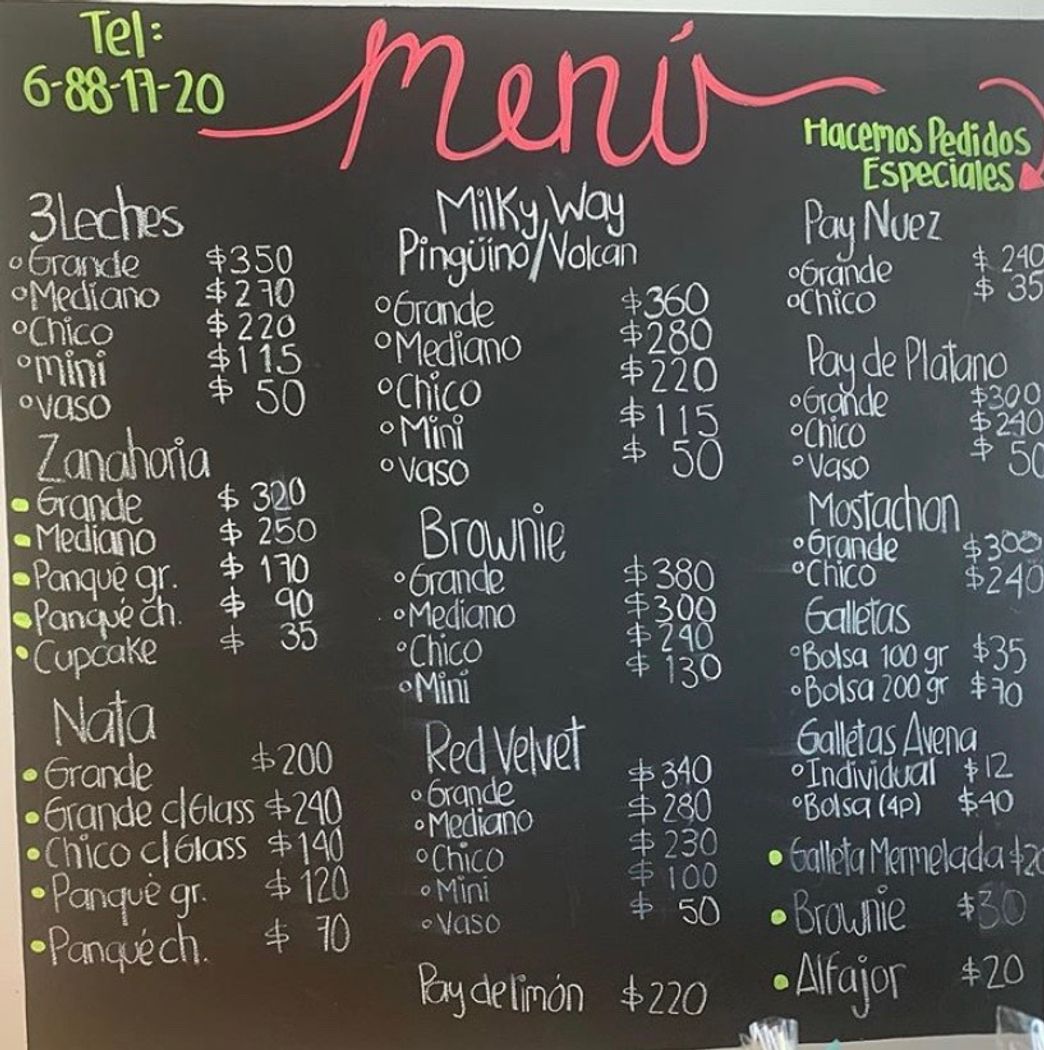 Tel:
6-88-17-20
Menú
Hacemos Pedidos
Especiales
3Leches
Grande $350
Mediano $270
Chico $220
mini $115
vaso $ 50
Zanahoria
Grande $320
Mediano $250
Panqué gr. $170
Panqué ch. $ 90
Cupcake $ 35
Nata
Grande $200
Grande c/Glass $240
Chico c/Glass $140
Panqué gr. $120
Panqué ch. $ 70
Milky Way
Pingüino/Volcan
Grande $360
Mediano $280
Chico $220
Mini $115
Vaso $ 50
Brownie
Grande $380
Mediano $300
Chico $240
Mini $130
Red Velvet
Grande $340
Mediano $280
Chico $230
Mini $100
Vaso $ 50
Pay de limón $220
Pay Nuez
Grande $240
Chico $ 35
Pay de Platano
Grande $300
Chico $240
Vaso $ 50
Mostachon
Grande $300
Chico $240
Galletas
Bolsa 100 gr $35
Bolsa 200 gr $70
Galletas Avena
Individual $12
Bolsa (4p) $40
Galleta Mermelada $20
Brownie $30
Alfajor $20